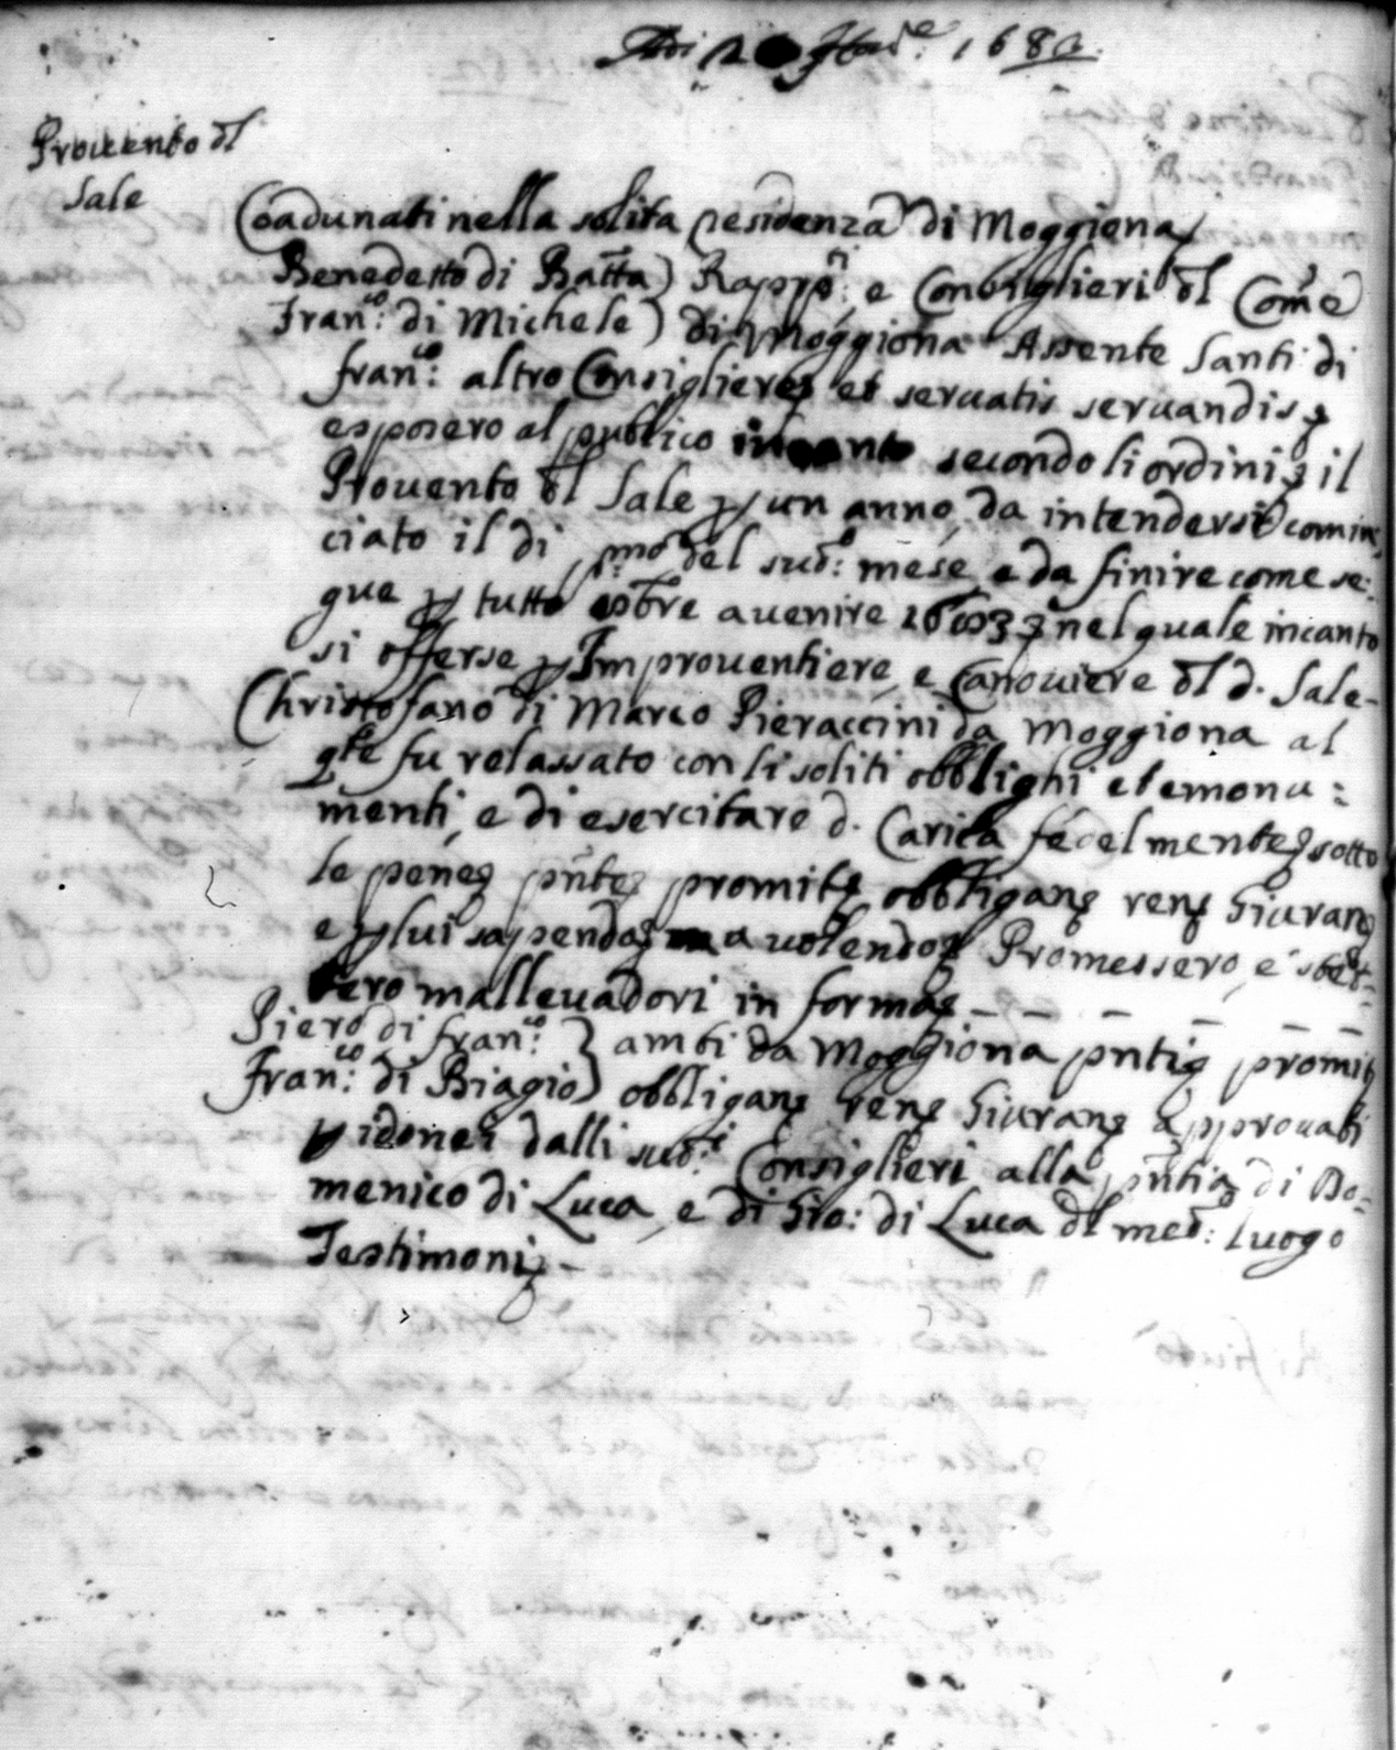 Adi 1682.
Prouento dl
Sale
Coadunati nella solita residenza di Moggiona
Benedetto di Batta) Rapp.ti e Consiglieri dl Come
Fran.co di Michele) di Moggiona Assente Santi di
fran.co altro Consigliere et seruatis seruandis
esposero al publico incanto secondo li ordini il
Prouento dl Sale p un anno da intendersi comin
ciato il di pmo del sud.o mese e da finire come se:
gue p tutto 8bre auenire 1683 nel quale incanto
si offerse p Improuentiere, e Canouiere dl d. Sale-
Christofano di Marco Pieraccini da Moggiona al
qle fu relassato con li soliti obblighi et emonu:
menti, e di esercitare d. Carica fedelmente sotto
le pene pnte promit obbligan ren Giuran
e p lui sapendo a uolendo Promessero, e stet=
tero malleuadori in forma
Piero di fran.co } ambi da Moggiona pnti promit
Fran.co di Biagio) obbligan ren Giuran approuati
p idonei dalli sud.i Consiglieri alla pntia di Do=
menico di Luca, e di Gio: di Luca dl med.o luogo
Testimoni -